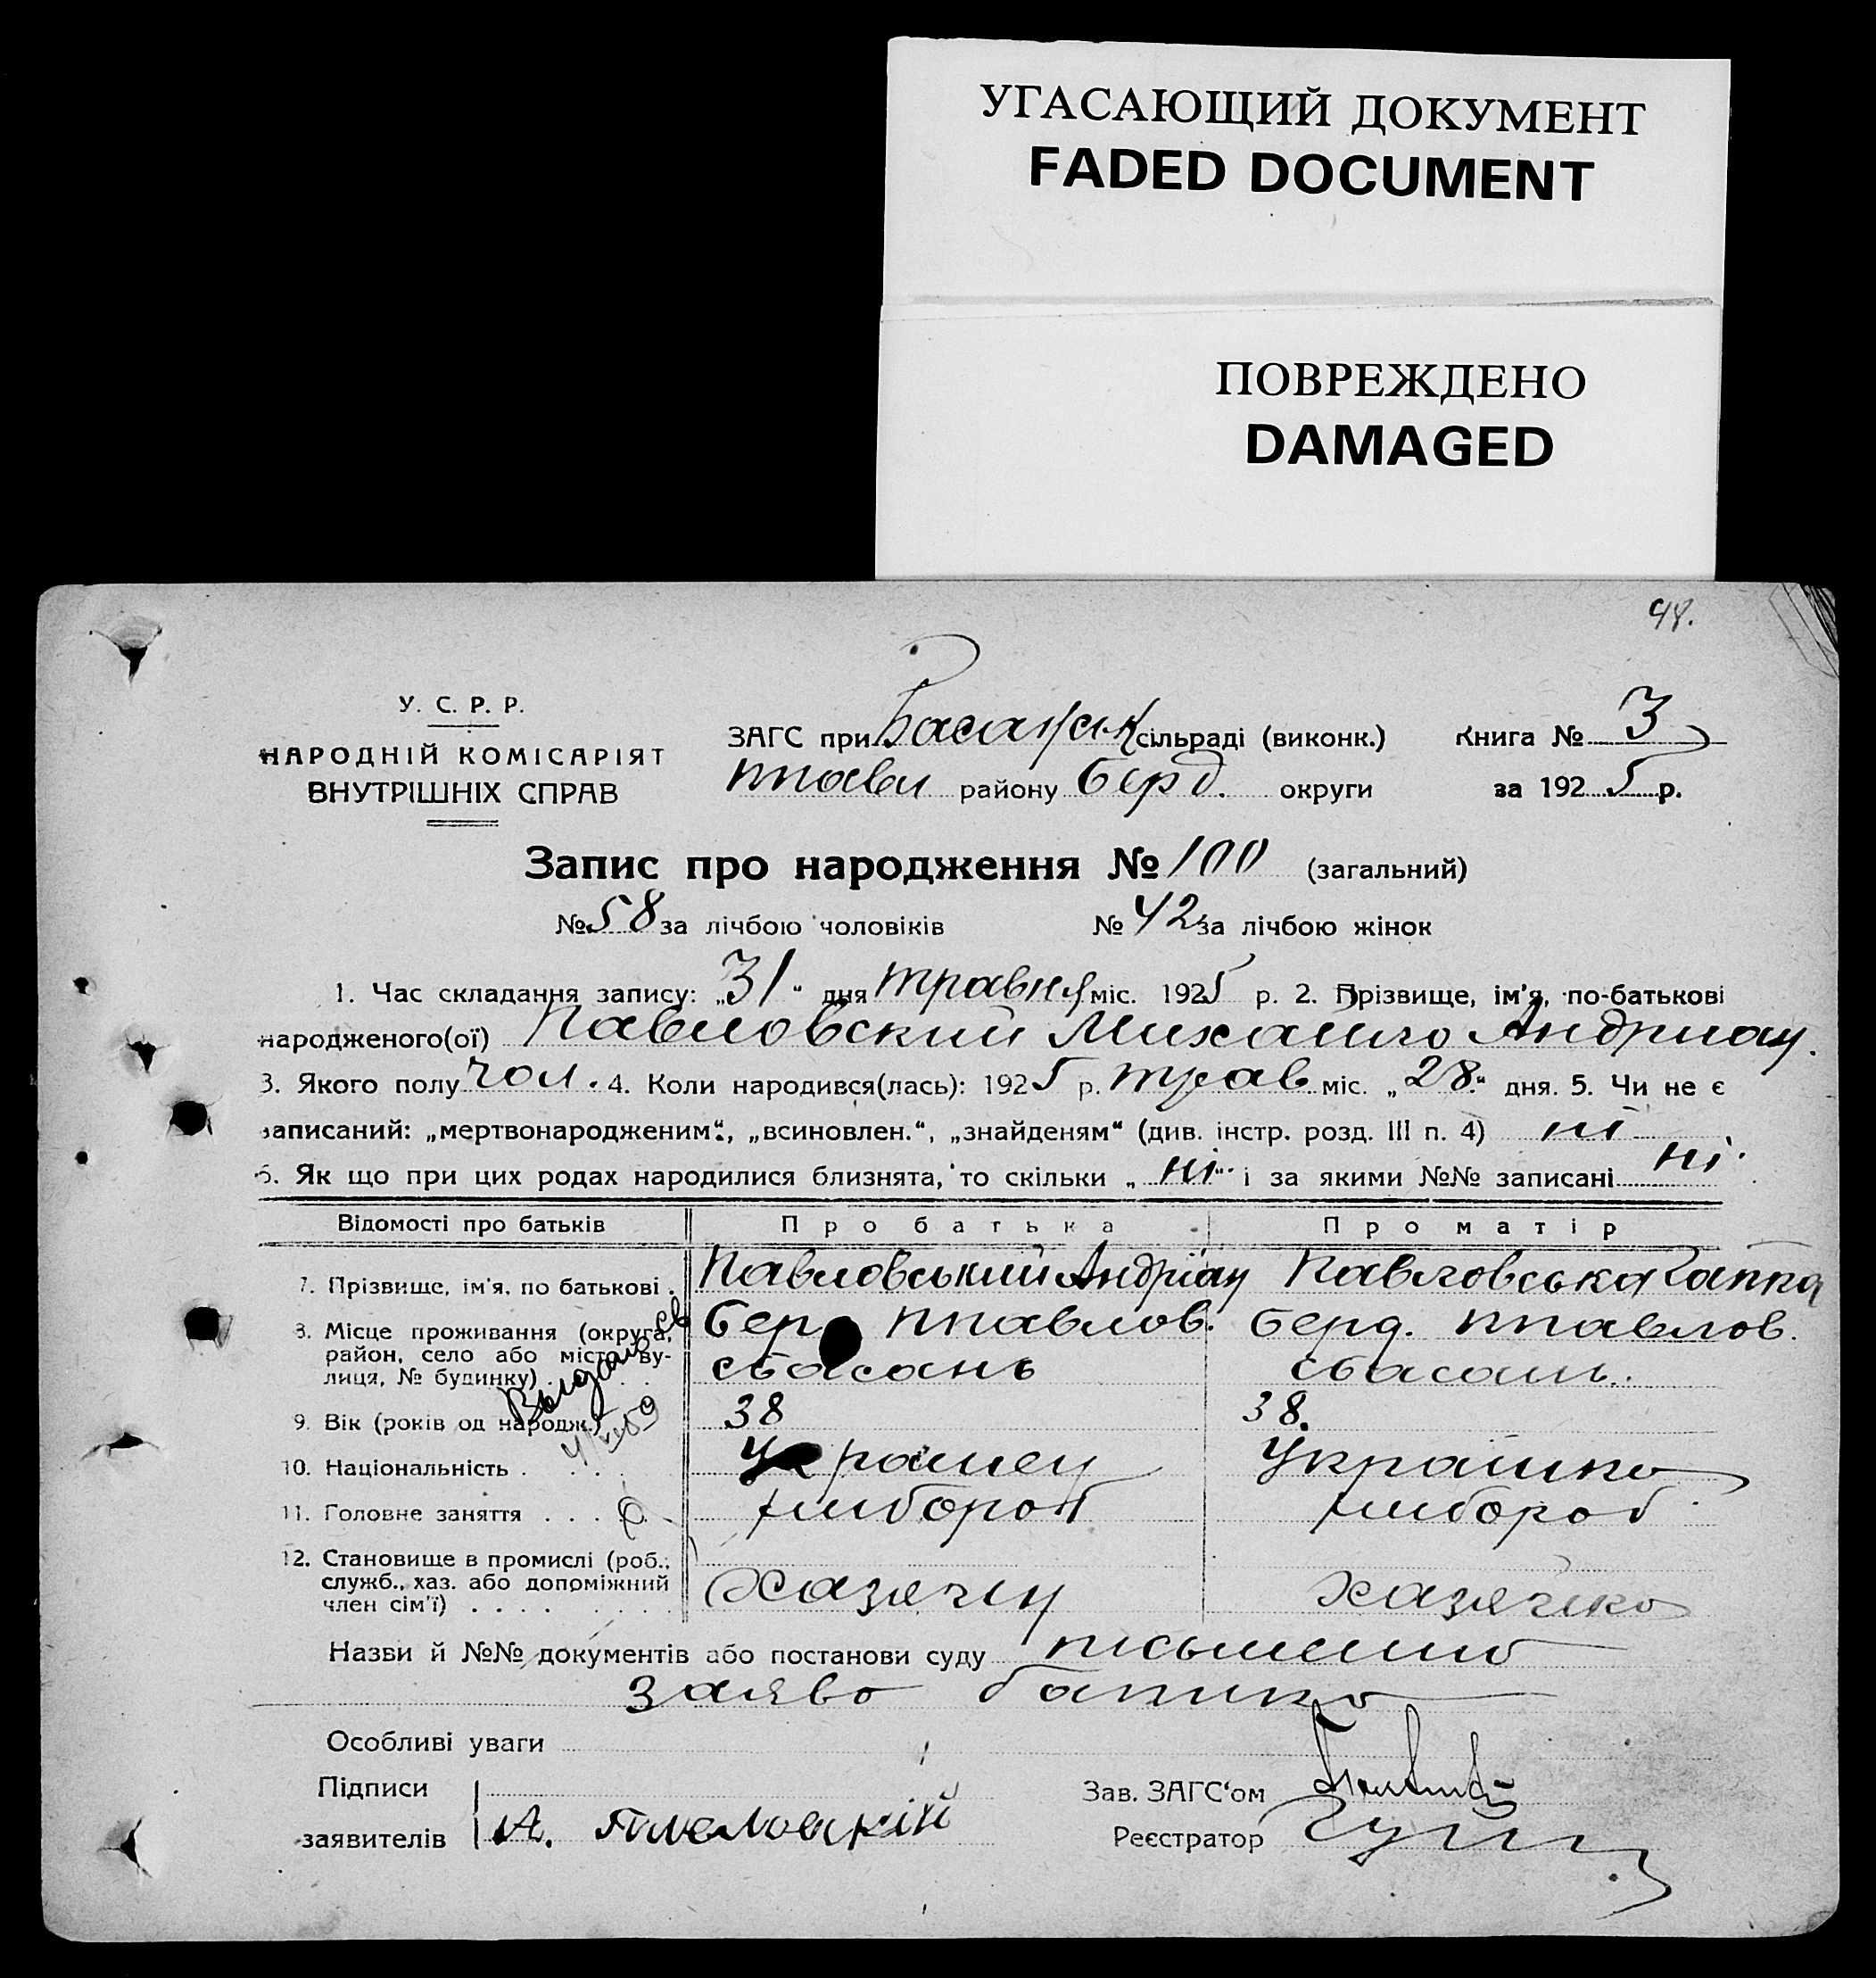 УГАСАЮЩИЙ ДОКУМЕНТ
FADED DOCUMENT
ПОВРЕЖДЕНО
DAMAGED
98.
У. С. Р. Р.
НАРОДНІЙ КОМІСАРІЯТ
ВНУТРІШНІХ СПРАВ
ЗАГС при Басанськ сільраді (виконк.) Книга № 3
ппавл району Берд. округи за 1925 р.
Запис про народження № 100 (загальний)
№ 58 за лічбою чоловіків № 42 за лічбою жінок
1. Час складання запису: „31“ дня травня міс. 1925 р. 2. Прізвище, ім'я, по-батькові
народженого(ої) Павловский Михайло Андриан.
3. Якого полу чол. 4. Коли народився(лась): 1925 р. трав міс. „28“ дня. 5. Чи не є
записаний: „мертвонародженим“, „всиновлен.“, „знайденям“ (див. інстр. розд. III п. 4) ні
6. Як що при цих родах народилися близнята, то скільки „ні“ і за якими №№ записані ні
Відомості про батьків Про батька Про матір
7. Прізвище, ім'я, по батькові . Павловський Андріан Павловська Ганна
8. Місце проживання (округа, район, село або місто, вулиця, № будинку) . Бер ппавлов. Берд. ппавлов.
сБасань сБасань.
9. Вік (років од народж.) 38 38.
10. Національність . Украинец Українка
11. Головне заняття . . . . хлібороб хлібороб
12. Становище в промислі (роб., служб., хаз. або допоміжний член сім'ї) . . . . Хазяин хазяйка
Назви й №№ документів або постанови суду письменно
заява батька
Особливі уваги
Підписи Зав. ЗАГС'ом
заявителів А. Павловский Реєстратор